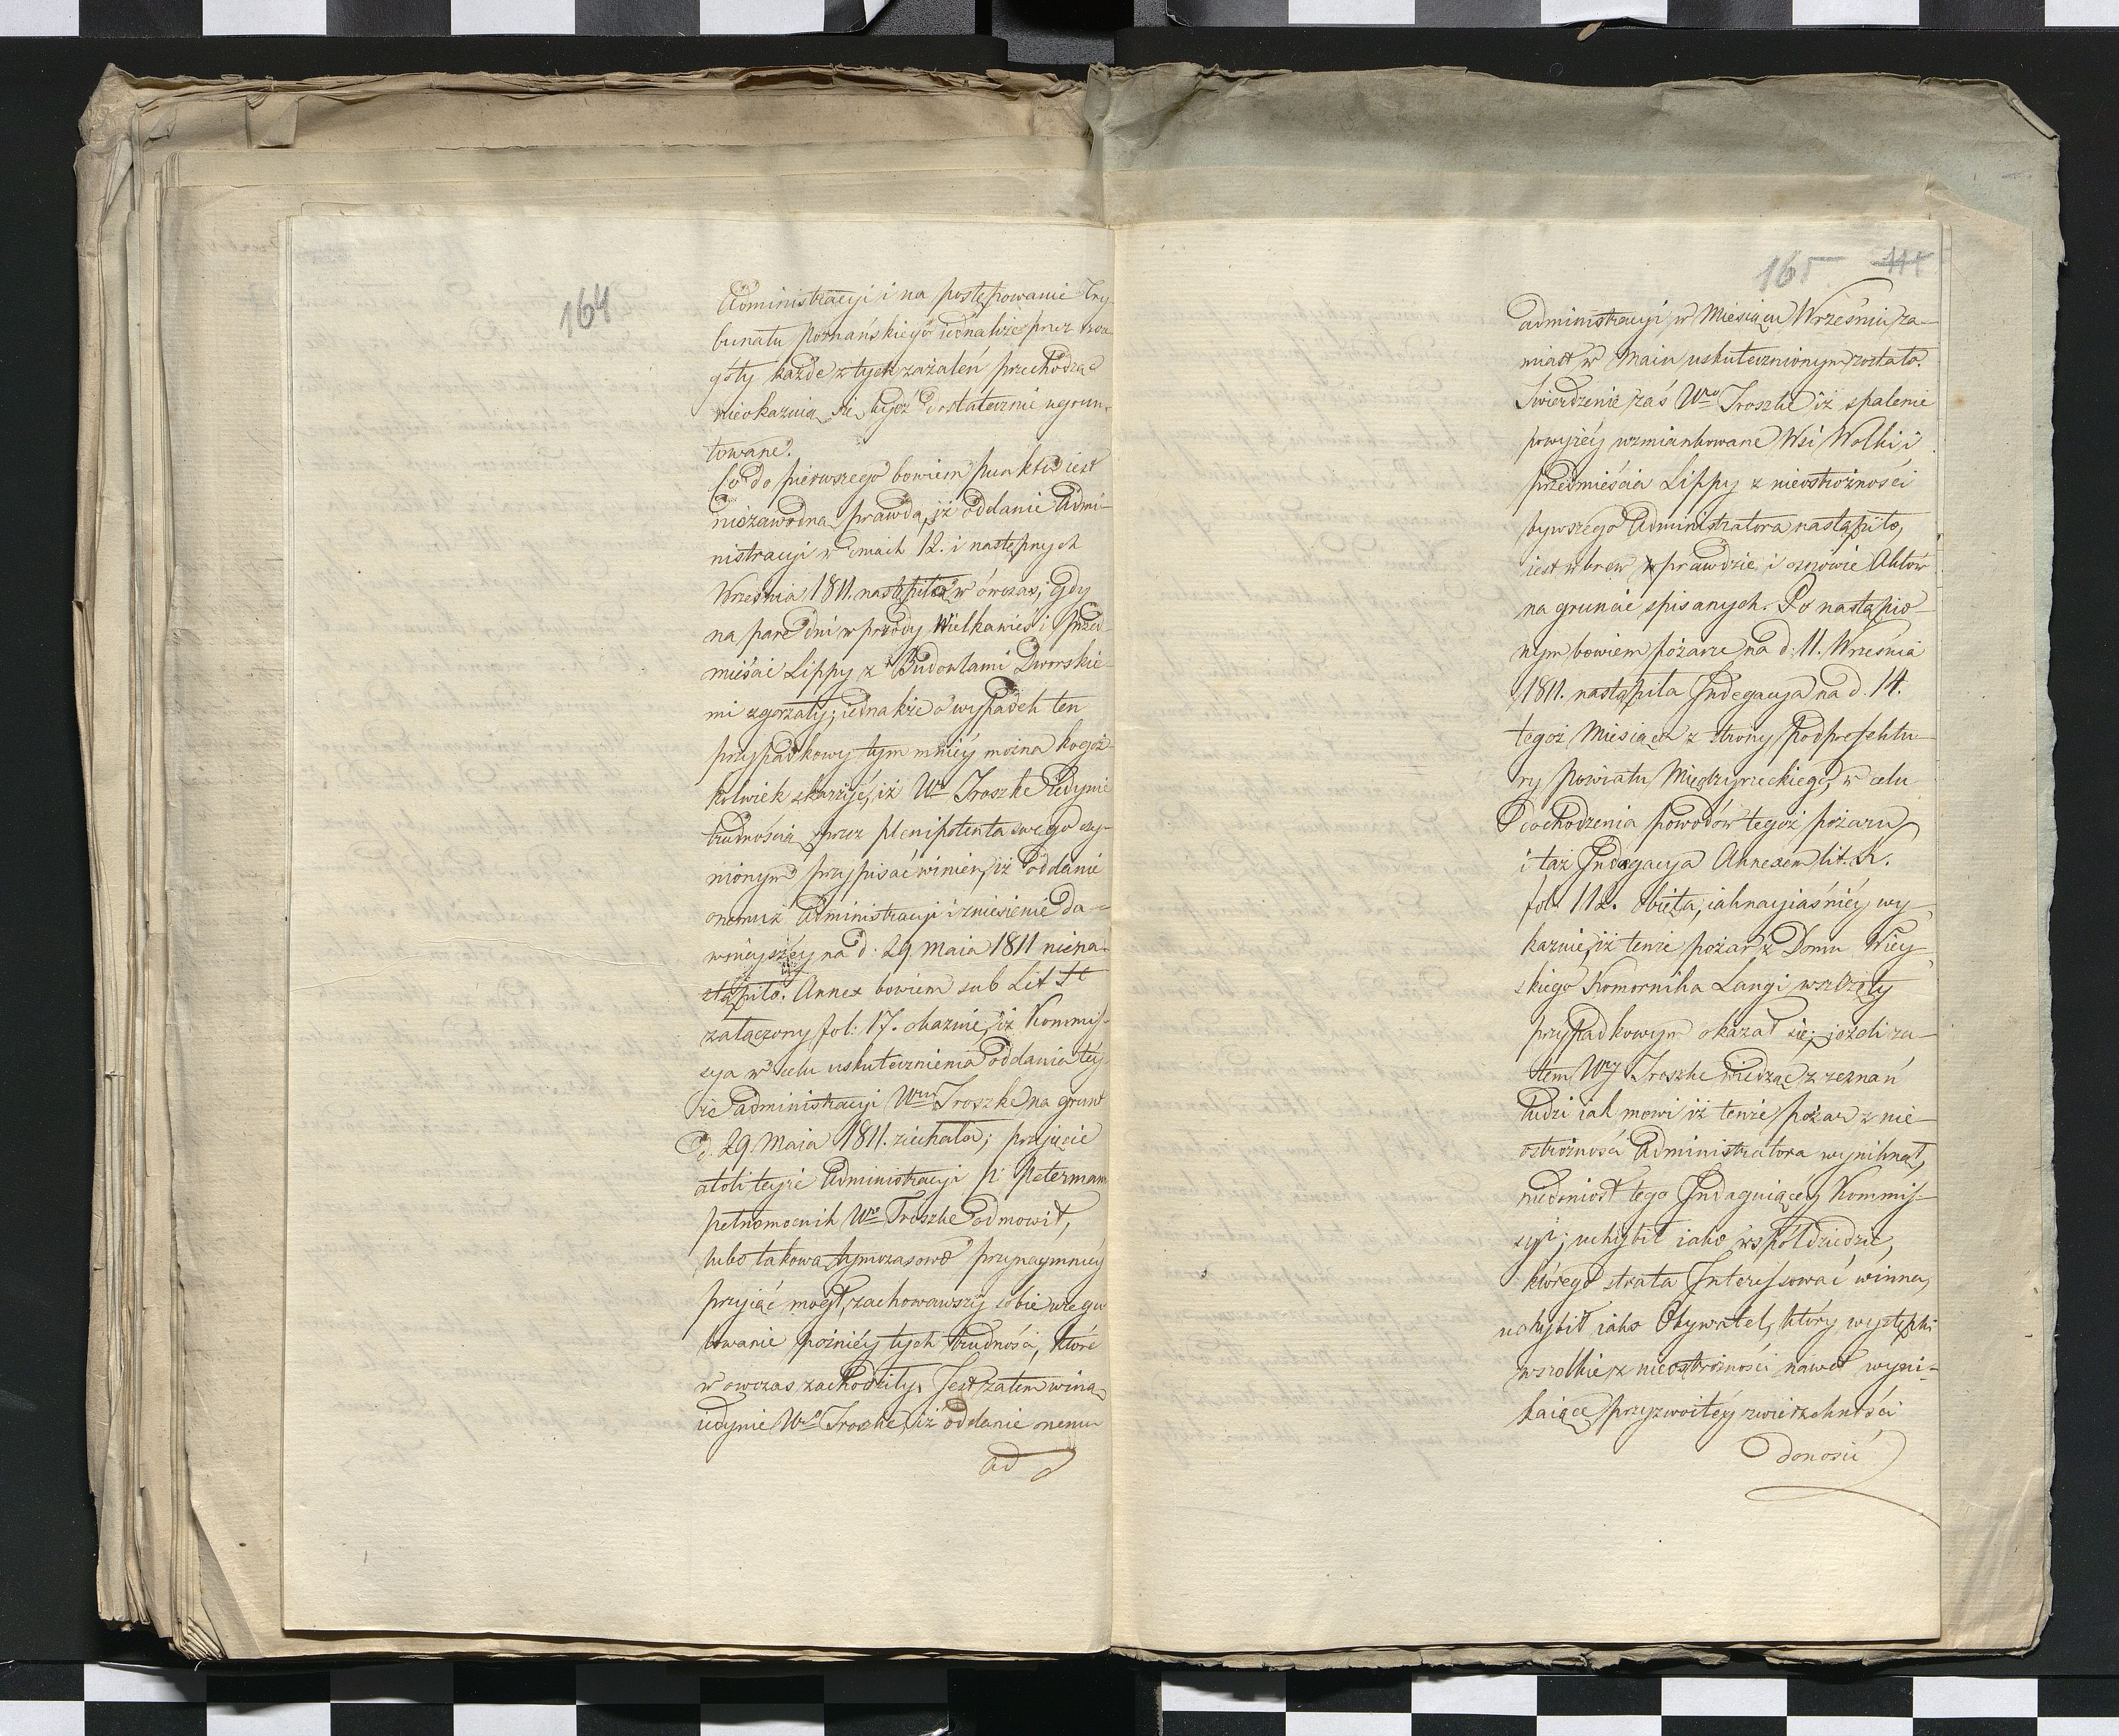 164
Administracyi i na postępowanie Try-
bunału Poznańskiego iednakże przez szcze-
góły każde z tych zażaleń przechodząc
nieokazuią się bydź dostatecznie ugrun-
towane.
Co do pierwszego bowiem punktu iest
niezawodną prawdą, iż oddanie Admi-
nistracyi w dniach 12. i następnych
Września 1811. nastąpiło w ówczas, gdy
na parę dni wprzódy Wielkawieś i przed-
mieście Lippy z Budowlami Dworskie-
mi zgorzały; iednakże o wypadek ten
przypadkowy tym mniéy można kogoż-
kolwiek skarżyć, iż Wny Troszke iedynie
trudnością przez plenipotenta swego czy-
nionym przypisać winien, iż oddanie
onemuż Administracyi i zniesienie da-
wnieyszéy na d: 29 Maia 1811 niena-
stąpiło. Annex bowiem sub Lit
załączony fol: 17. okazuie, iż Kommis-
sya w celu uskutecznienia oddania téy-
że administracyi Wmu Troszke na grunt
d. 29 Maia 1811. ziechała; przyięcie
atoli teyże Administracyi P: Peterman
pełnomocnik Wgo Troszke odmowił,
lubo takową tymczasowo przynaymniéy
przyiąć mogł, zachowawszy sobie uregu-
lowanie poźniéy tych trudności, które
w owczas zachodziły. Jest zatem winą
iedynie Wgo Troszke, iż oddanie onemu
ad
165 111
administracyi w Miesiącu Wrześniu za-
miast w Maiu uskutecznionym zostało.
Twierdzenie zaś Wgo Troszke iż spalenie
powyżéy wzmiankowane Wsi Wolki i
przedmieścia Lippy z nieostrożności
bywszego Administratora nastąpiło,
iest wbrew prawdzie i osnowie Aktów
na gruncie spisanych. Po nastąpio-
nym bowiem pożarze na d: 11. Września
1811. nastąpiła Indegacya na d. 14.
tegoż Miesiąca z strony Podprefektu-
ry Powiatu Międzyrzeckiego, w celu
dochodzenia powodów tegoż pożaru,
i taż Indagacya Annexem lit. K.
fol. 112. obięta, iaknayiaśniéy wy-
kazuie, iż tenże pożar z Domu Wiey-
skiego Komornika Langi wszczęty
przypadkowym okazał się; jeżeli za-
tem Wny Troszke wiedząc z zeznań
ludzi iak mowi iż tenże pożar z nie-
ostrożności Administratora wyniknął,
niedoniosł tego Indaguiącéy Kommis-
syi; uchybił iako współdziedzic,
którego strata Interessować winna,
uchybił iako Obywatel, który występki
wszelkie z nieostrożności nawet wyni-
kaiące przyzwoitéy zwierzchności
donosić